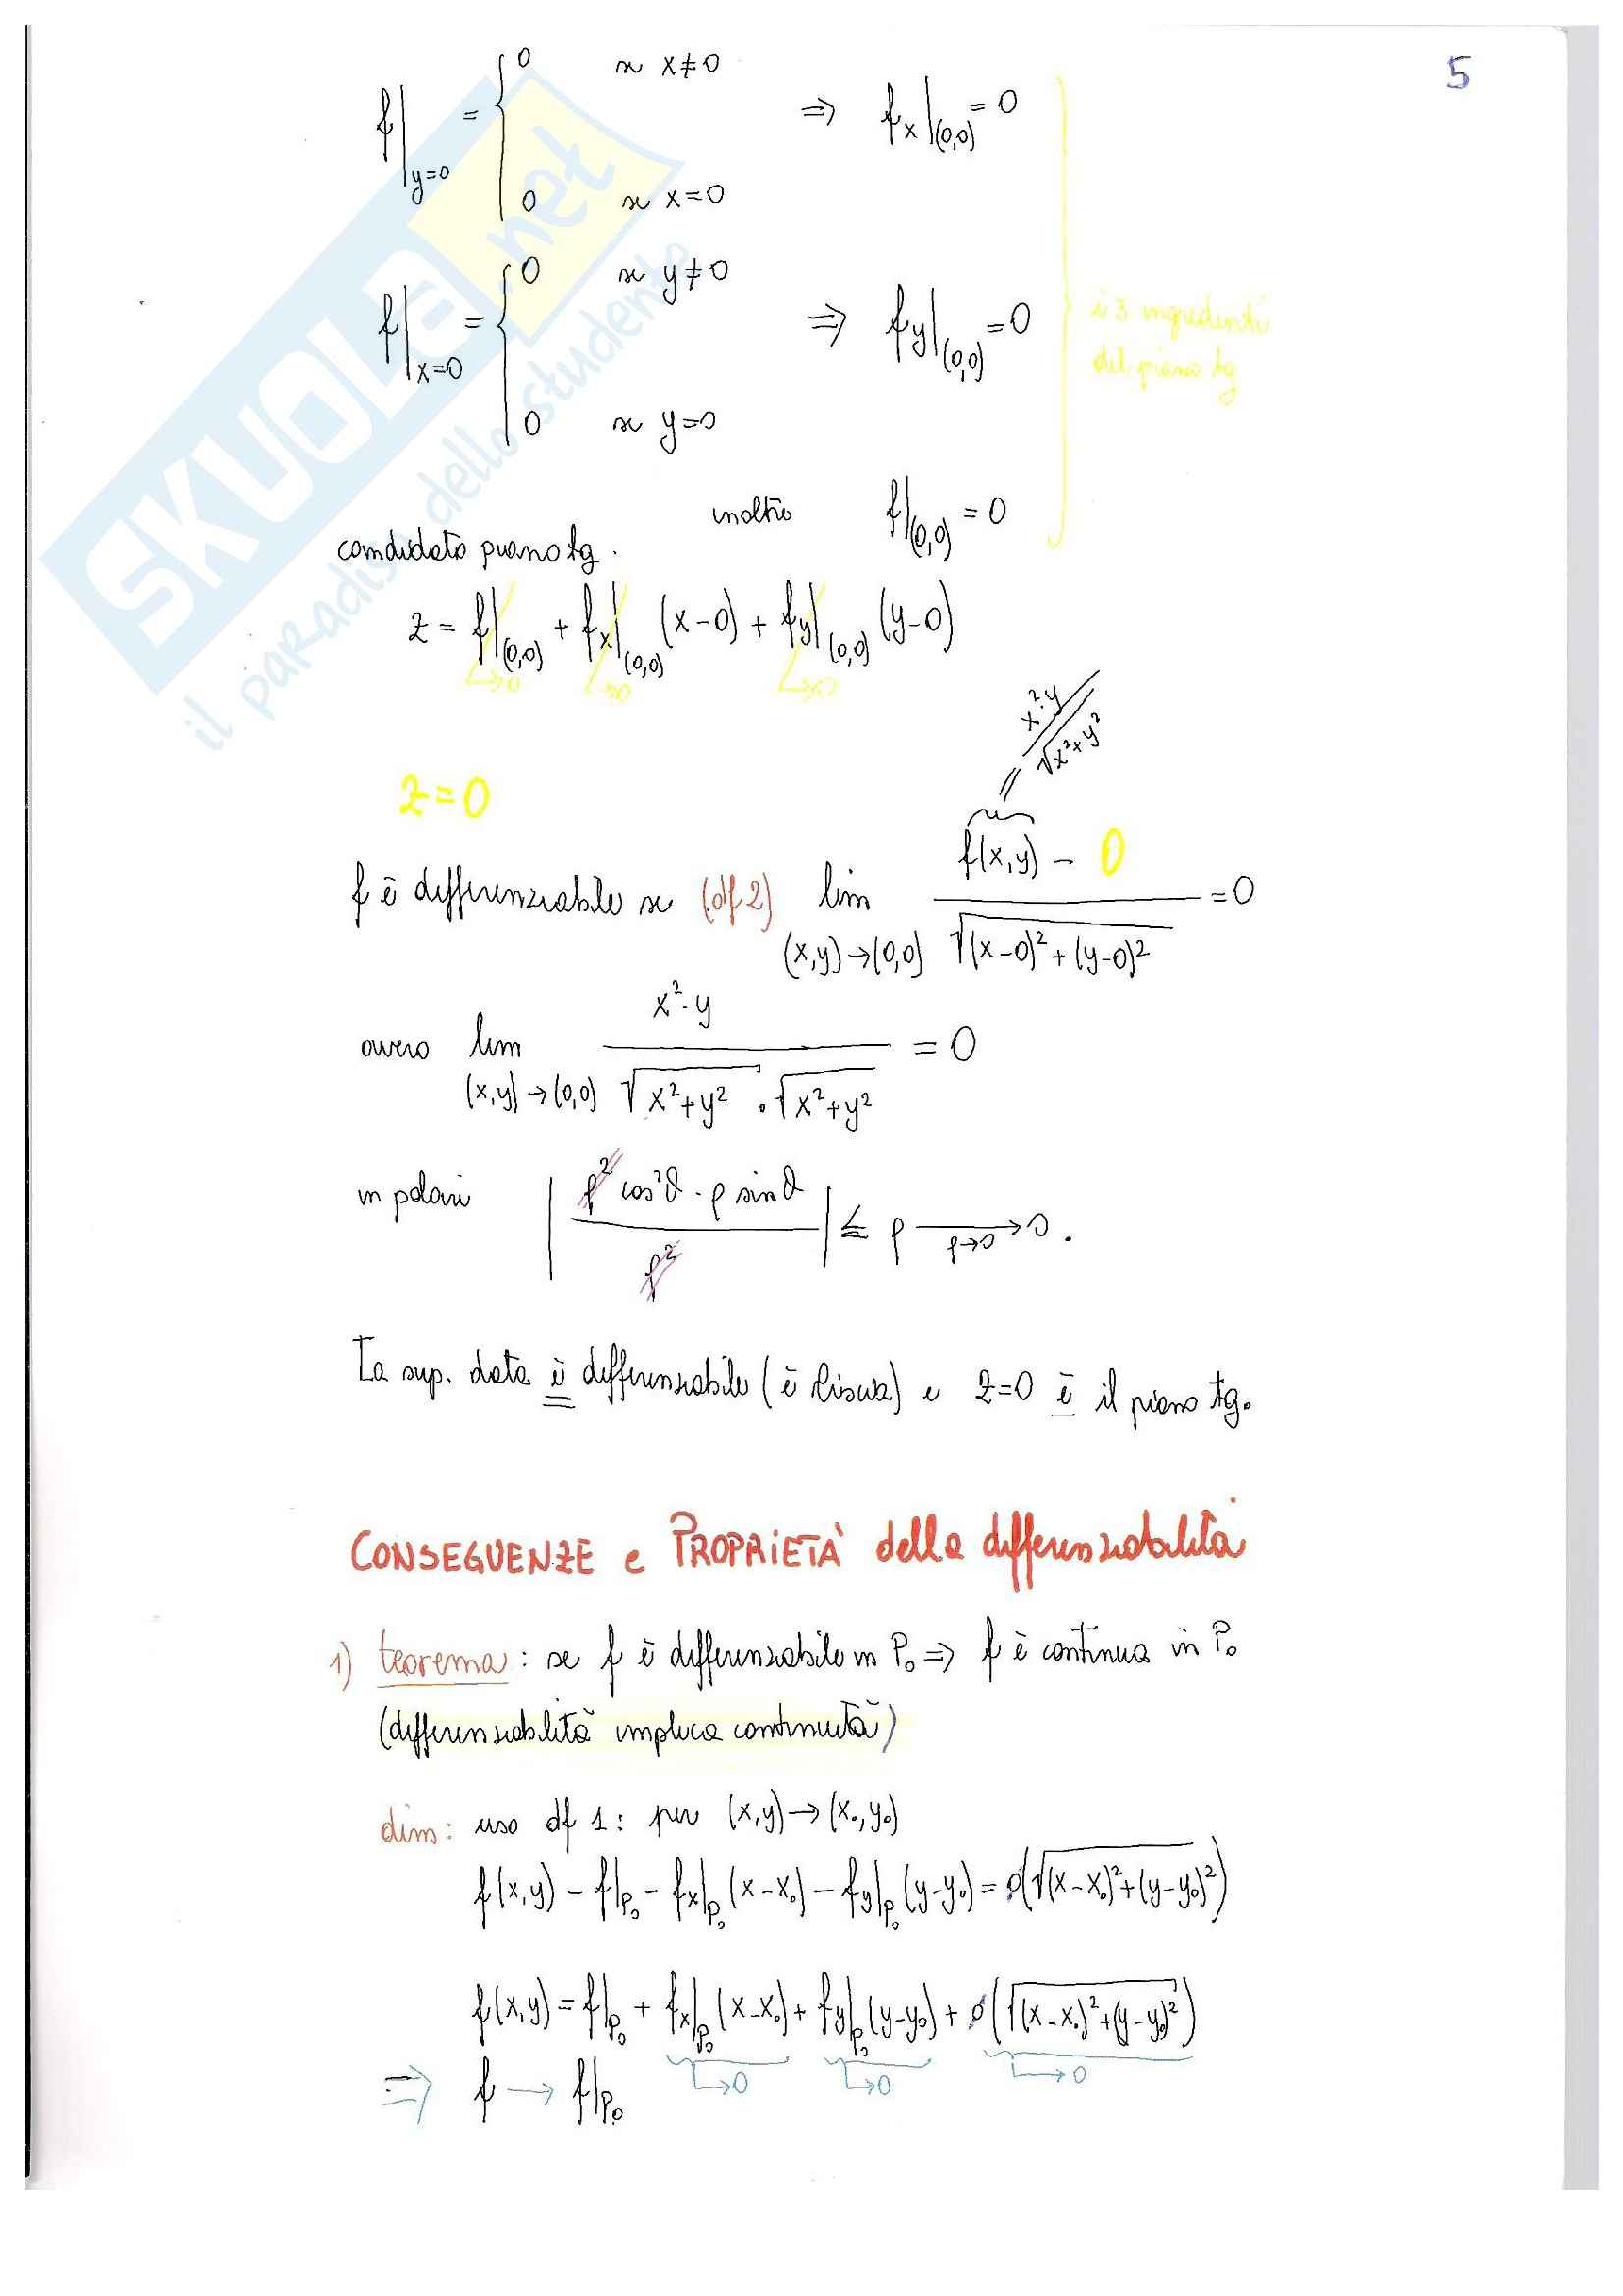 5
f|y=0 = { 0 se x≠0 ⇒ fx|(0,0) = 0
0 se x=0
f|x=0 = { 0 se y≠0 ⇒ fy|(0,0) = 0
0 se y=0
i 3 ingredienti
del piano tg
inoltre f|(0,0) = 0
candidato piano tg.
z = f|(0,0) + fx|(0,0) (x-0) + fy|(0,0) (y-0)
↳→0 ↳→0 ↳→0
z=0
= x²·y / √x²+y²
f è differenziabile se (df 2) lim (x,y)→(0,0) f(x,y) - 0 / √(x-0)²+(y-0)² = 0
ovvero lim (x,y)→(0,0) x²·y / √x²+y² · √x²+y² = 0
in polari | ρ² cos²ϑ · ρ sinϑ / ρ² | ≤ ρ → ρ→0 0.
La sup. data è differenziabile (è liscia) e z=0 è il piano tg.
CONSEGUENZE e PROPRIETÀ della differenziabilità
1) teorema: se f è differenziabile in P₀ ⇒ f è continua in P₀
(differenziabilità implica continuità)
dim: uso df 1: per (x,y)→(x₀,y₀)
f(x,y) - f|P₀ - fx|P₀ (x-x₀) - fy|P₀ (y-y₀) = o(√(x-x₀)²+(y-y₀)²)
f(x,y) = f|P₀ + fx|P₀ (x-x₀) + fy|P₀ (y-y₀) + o(√(x-x₀)²+(y-y₀)²)
↳→0 ↳→0 ↳→0
⇒ f → f|P₀
SKUOLA.net
il paradiso dello studente